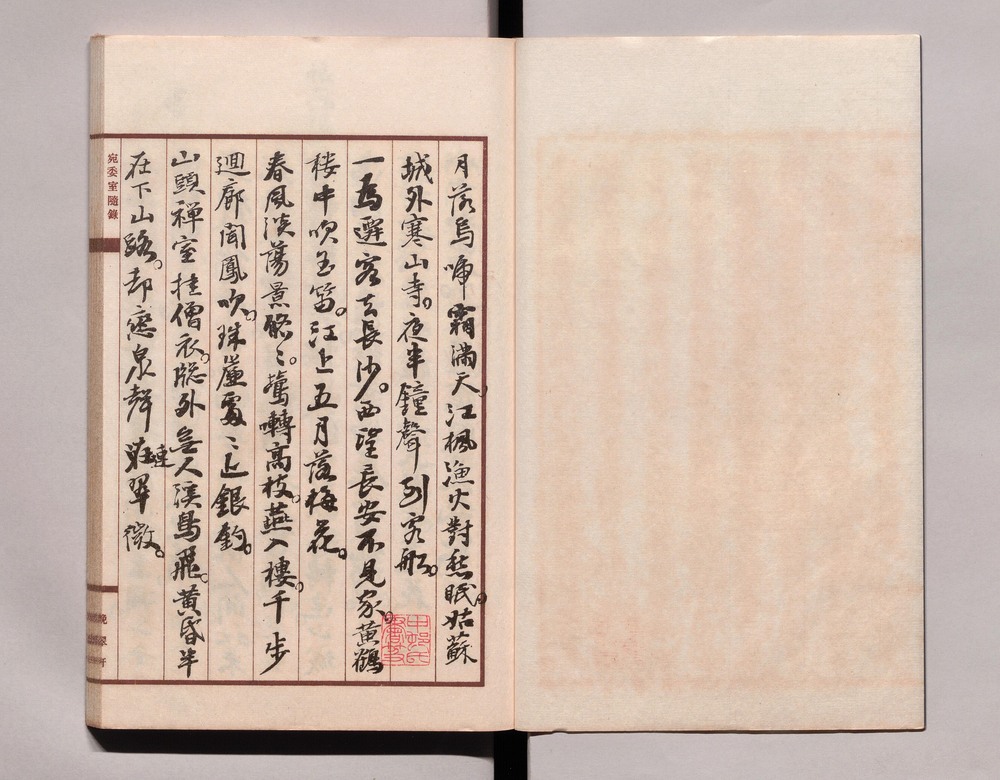 月落烏啼霜滿天。江楓漁火對愁眠。姑蘇
城外寒山寺。夜半鐘聲到客船。
一為遷客去長沙。西望長安不見家。黃鶴
樓中吹玉笛。江上五月落梅花。
春風淡蕩景悠〻。鶯囀高枝。燕入樓。千步
迴廊聞鳳吹。珠簾處〻上銀鉤。
山頭禪室挂僧衣。牎外無人溪鳥飛。黃昏半
在下山路。却戀泉聲連翠微。
宛委室隨錄